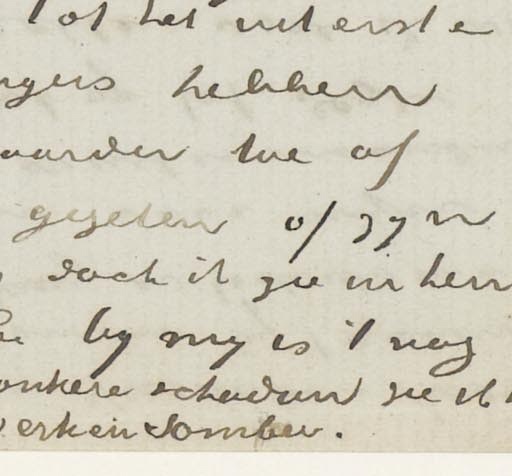 Tot het uiterste
hebben
waarden die of
gegeten of zyn
doch ik zie in hen
by my is 't nog
donkere schaduw zie ik
werken somber.